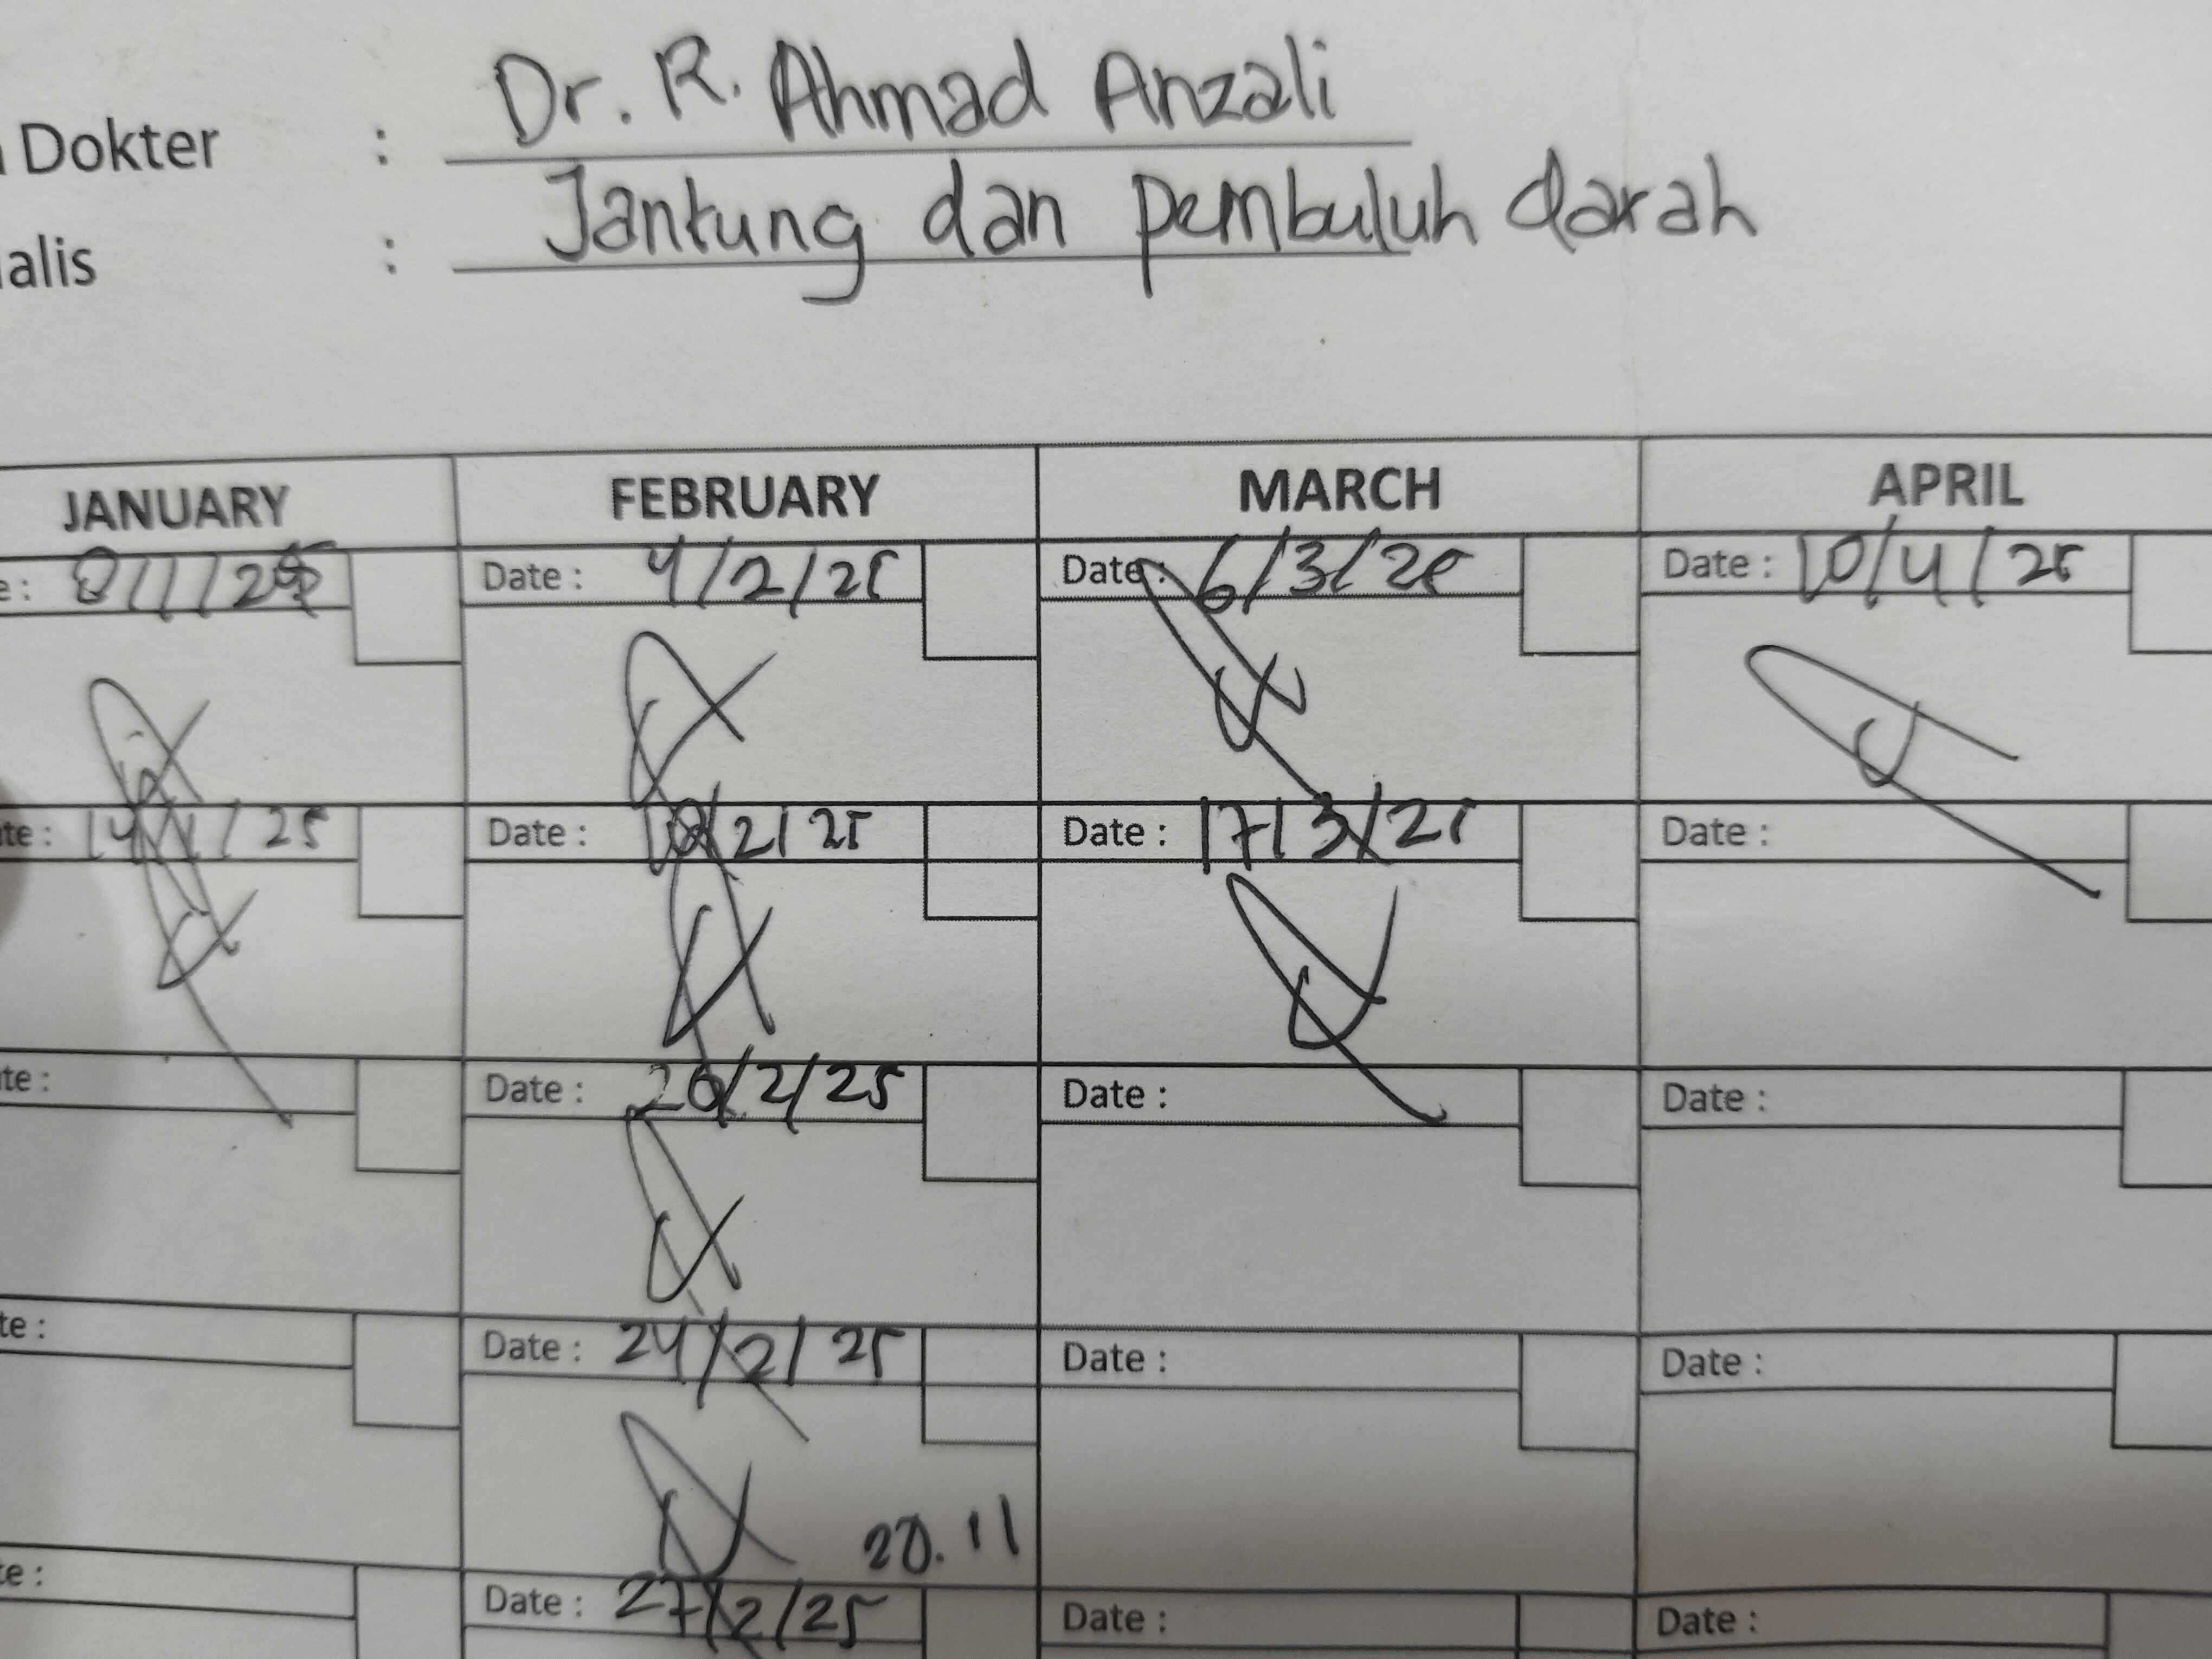 Dr. R. Ahmad Anzali
Dokter :
Jantung dan pembuluh darah
alis :
JANUARY FEBRUARY MARCH APRIL
e: 8/1/25 Date : 4/2/25 Date : 6/3/25 Date : 10/4/25
te : 14/1/25 Date : 10/2/25 Date : 17/3/25 Date :
te : Date : 20/2/25 Date : Date :
te : Date : 24/2/25 Date : Date :
20.11
te : Date : 27/2/25 Date : Date :